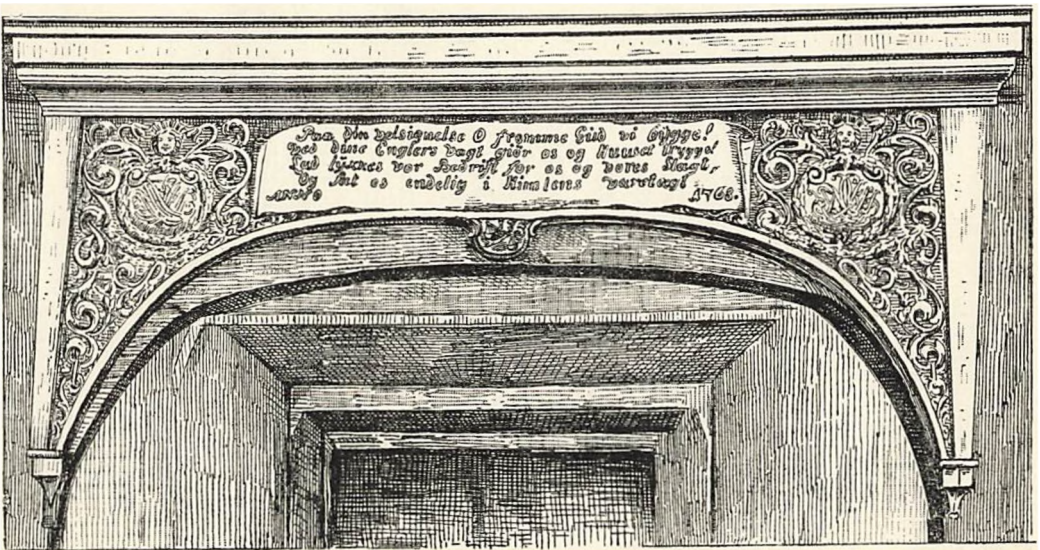 Paa din velsignelse O fromme Gud vi bygge!
ved dine Englers vagt giør os og Huuset trygge!
Lad lykkes vor Bedrift for os og vores Slægt,
Og sæt os endelig i Himlens
ANNO 1768.